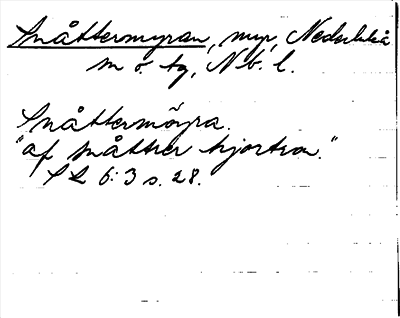 Snåttermyran, myr, Nederluleå
m o. tg, Nb. l.
Snåttermöyra.
"af snåtter hjortron."
SL 6:3 s. 28.